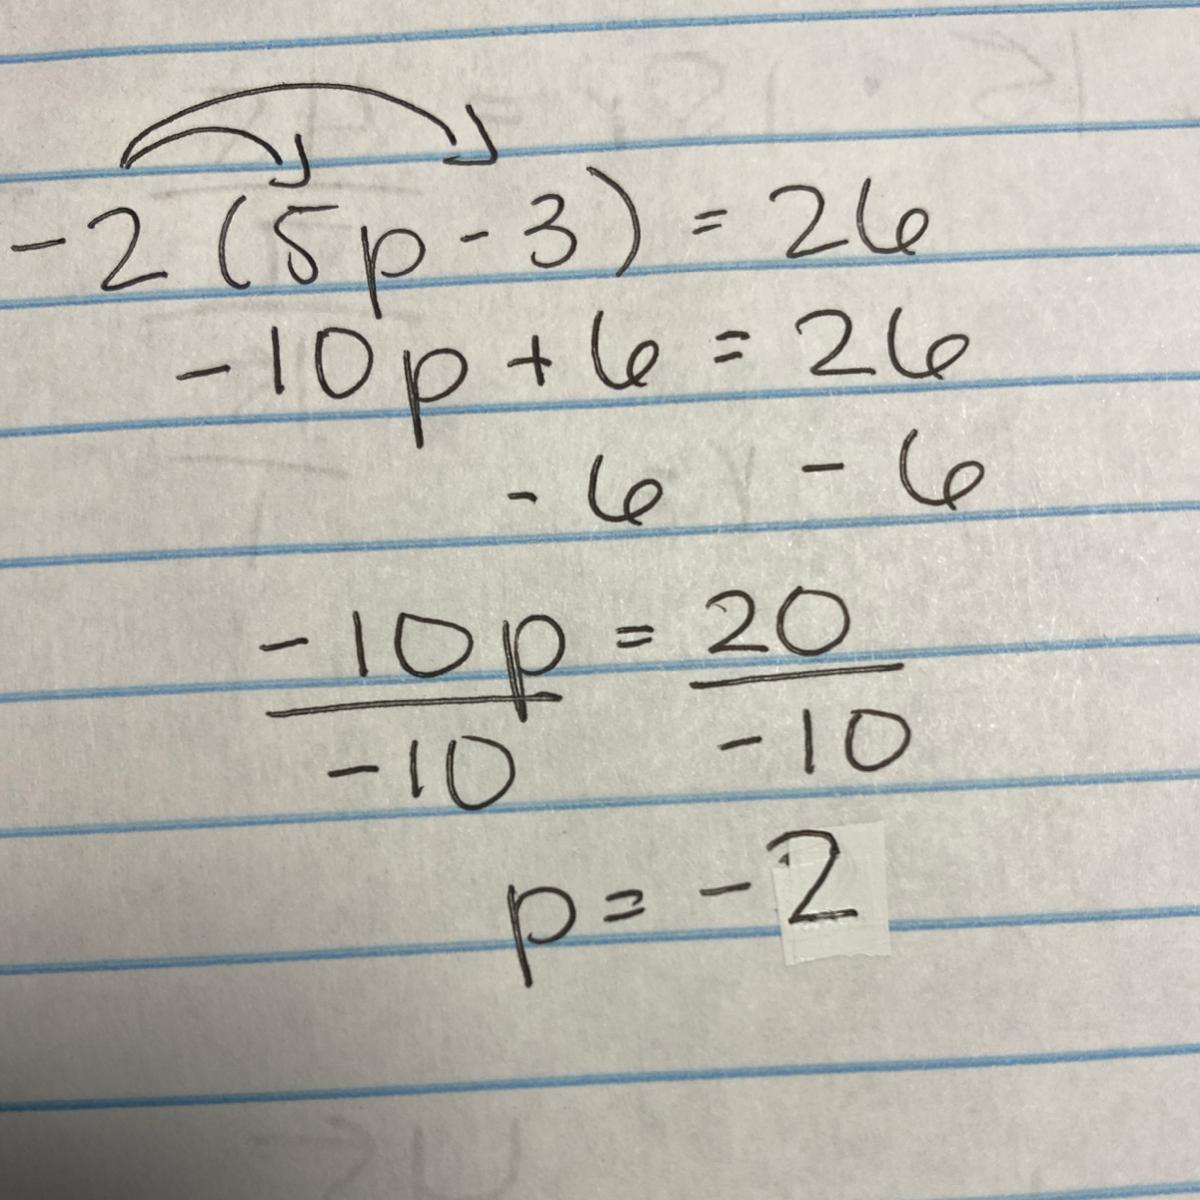 -2(5p-3) = 26
-10p + 6 = 26
-6 -6
-10p = 20
-10 -10
p = -2